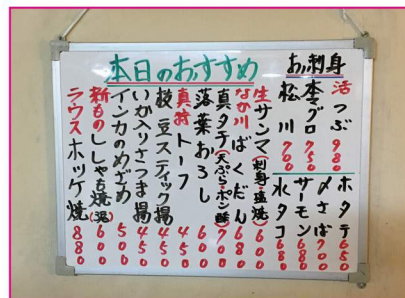 本日のおすすめ
お刺身
活つぶ 980
本マグロ 750
松川 700
ホタテ 650
〆さば 700
サーモン 680
水タコ 680
生サンマ(刺身・塩焼) 600
なか川ばくだん 680
真タチ(天ぷら・ポン酢) 700
落葉おろし 600
真狩トーフ 450
枝豆スティック揚 450
いか入りさつま揚 450
インカのめざめ 500
新ものししゃも焼 600
ラウスホッケ焼 880